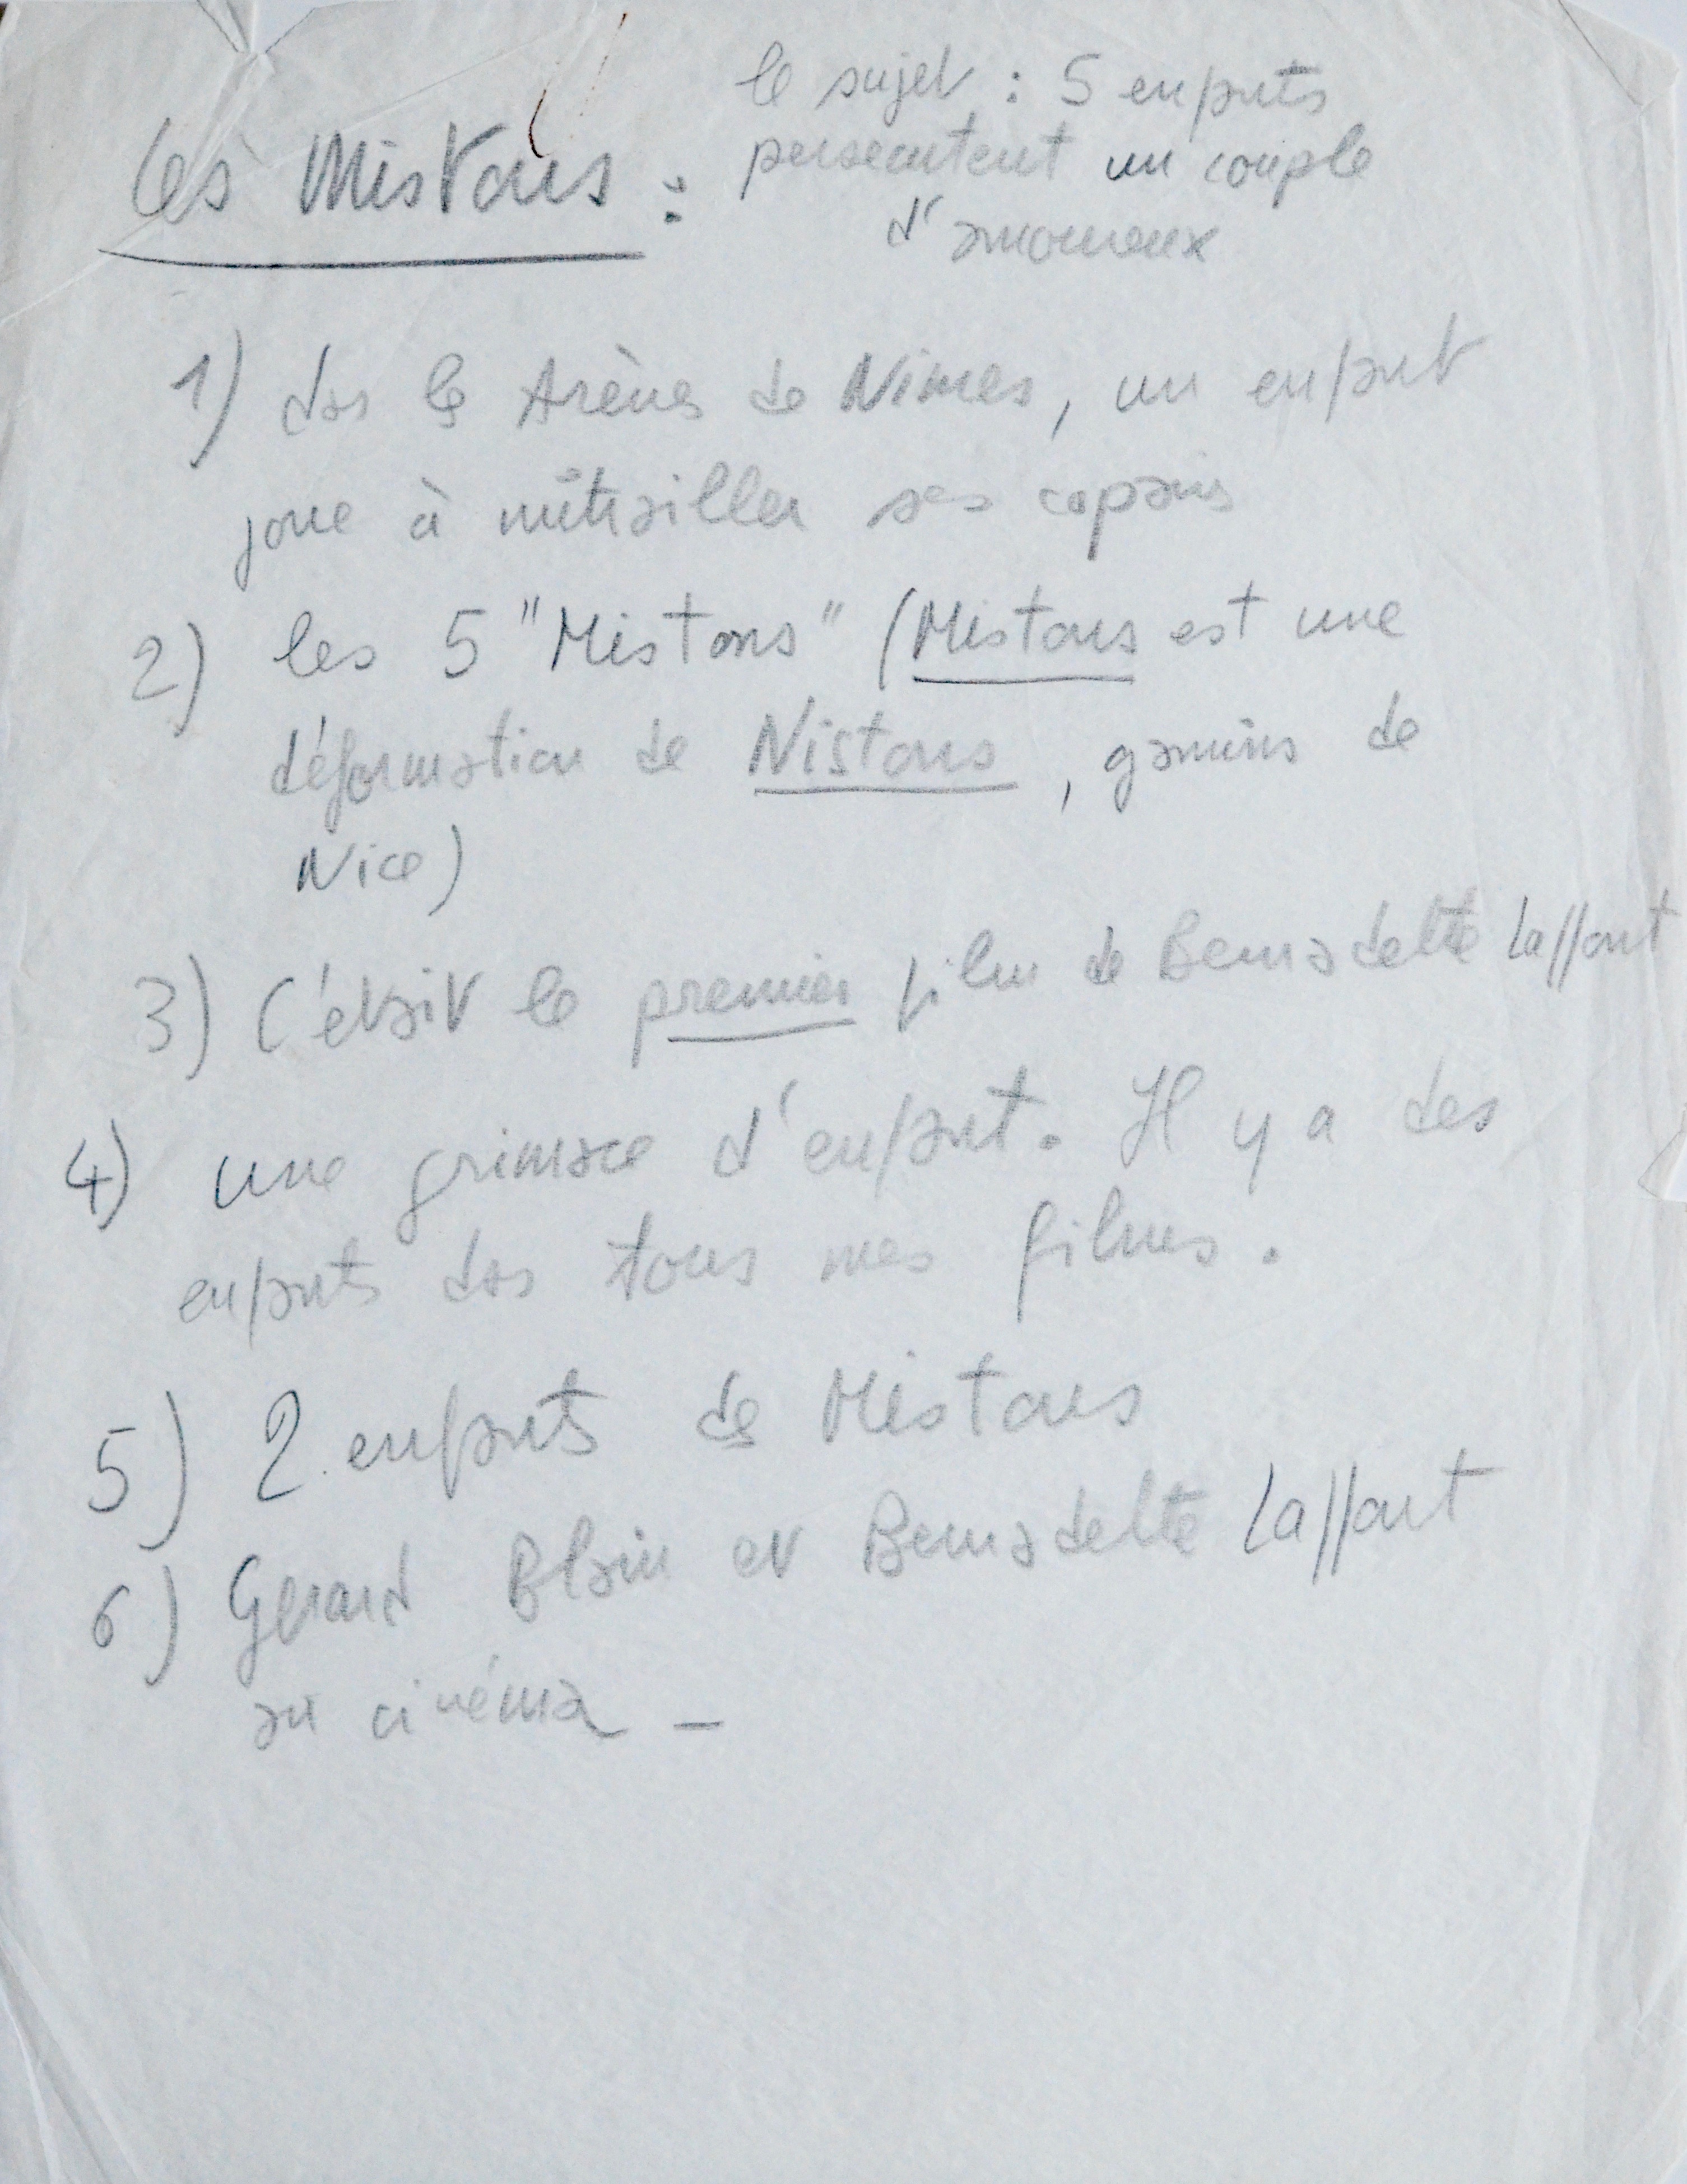 Les Mistons :
le sujet : 5 enfants
persecutent un couple
d'amoureux
1) ds les Arènes de Nimes, un enfant
joue à mitrailler ses copains
2) les 5 "Mistons" (Mistons est une
déformation de Nistons, gamins de
Nice)
3) C'était le premier film de Bernadette Laffont
4) une grimace d'enfant. Il y a des
enfants ds tous mes films.
5) 2 enfants des Mistons
6) Gerard Blain et Bernadette Laffont
au cinéma -